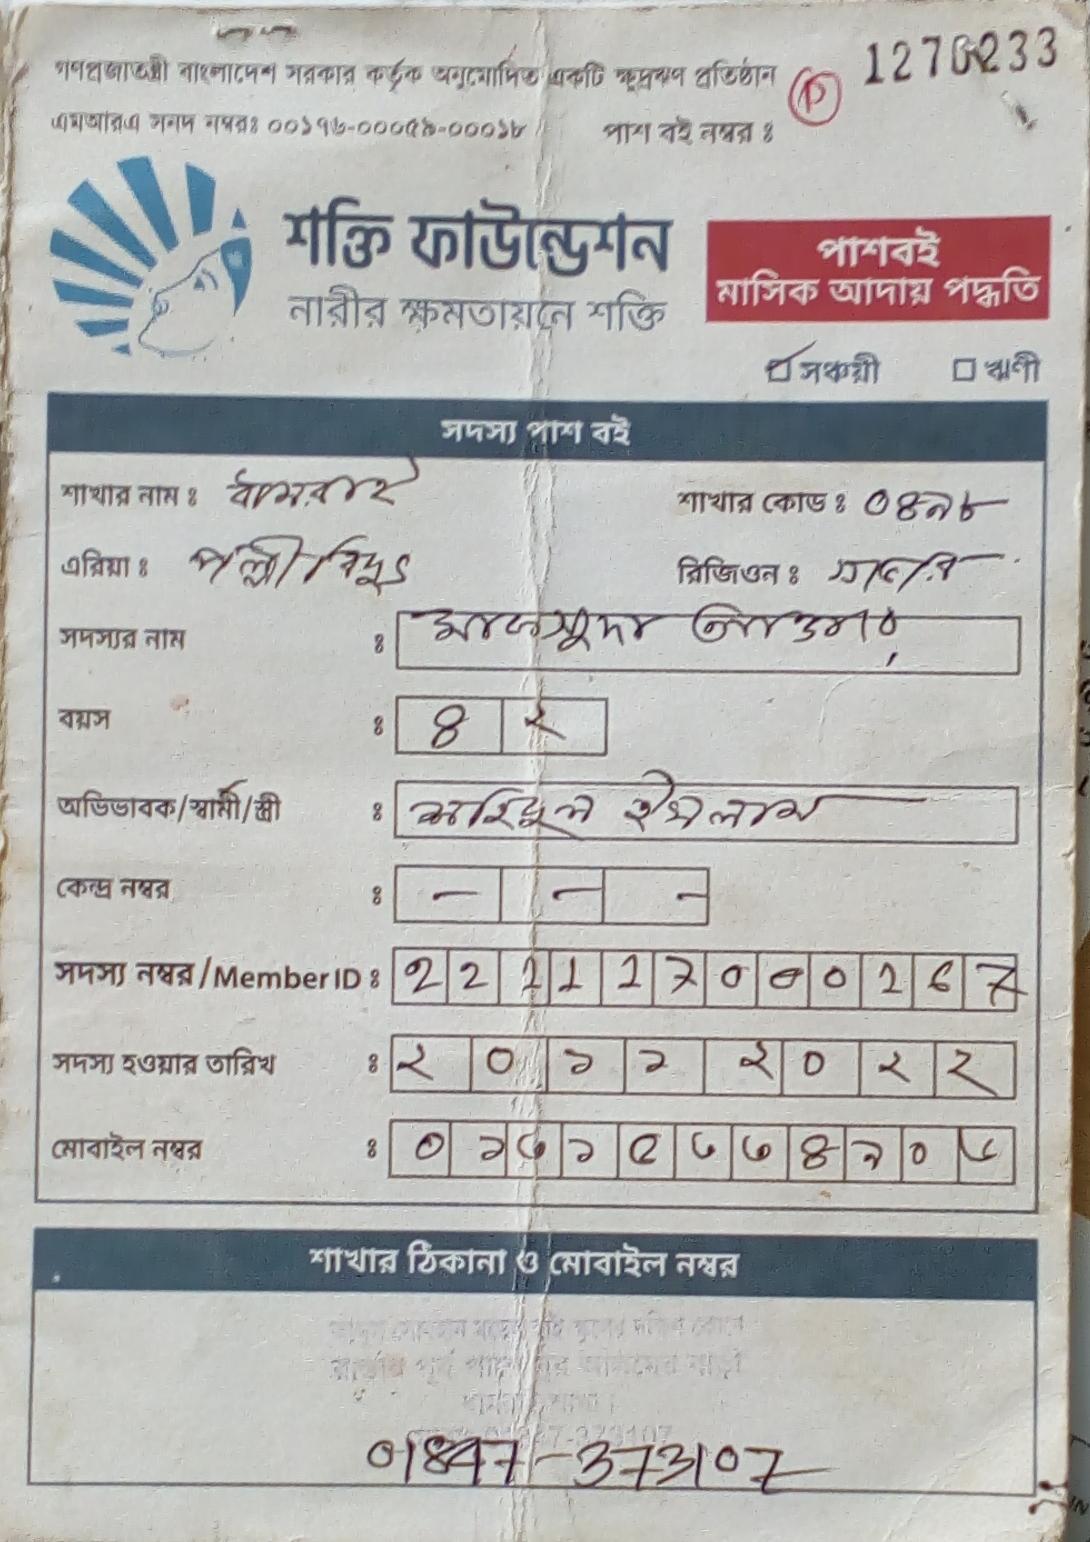 গণপ্রজাতন্ত্রী বাংলাদেশ সরকার কর্তৃক অনুমোদিত একটি ক্ষুদ্রঋণ প্রতিষ্ঠান
এমআরএ সনদ নম্বরঃ ০০১৭৬-০০০৫৯-০০০১৮
পাশ বই নম্বর ঃ 1270233
শক্তি ফাউন্ডেশন
নারীর ক্ষমতায়নে শক্তি
পাশবই
মাসিক আদায় পদ্ধতি
সঞ্চয়ী ঋণী
সদস্য পাশ বই
শাখার নাম ঃ ধামরাই শাখার কোড ঃ ০৪৯৮
এরিয়া ঃ পল্লী বিদ্যুৎ রিজিওন ঃ
সদস্যর নাম ঃ মাকসুদা আক্তার
বয়স ঃ ৪২
অভিভাবক/স্বামী/স্ত্রী ঃ ইসলাম
কেন্দ্র নম্বর ঃ - - -
সদস্য নম্বর/Member ID ঃ 221117000167
সদস্য হওয়ার তারিখ ঃ ২০১১২০২২
মোবাইল নম্বর ঃ
শাখার ঠিকানা ও মোবাইল নম্বর
01847-373107